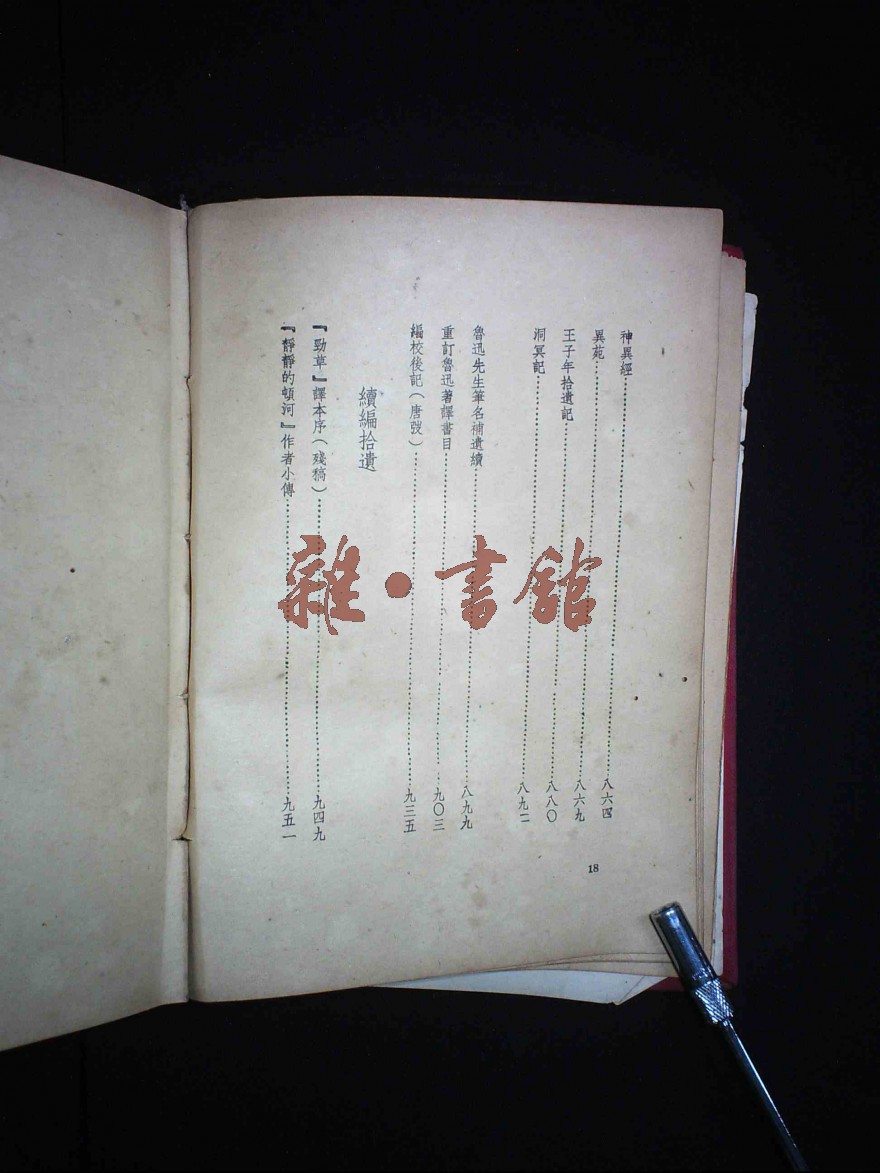 神異經……八六四
異苑……八六九
王子年拾遺記……八八〇
洞冥記……八九二
魯迅先生筆名補遺續……八九九
重訂魯迅著譯書目……九〇三
編校後記(唐弢)……九三五
續編拾遺
『勁草』譯本序(殘稿)……九四九
『靜靜的頓河』作者小傳……九五一
18
雜·書館